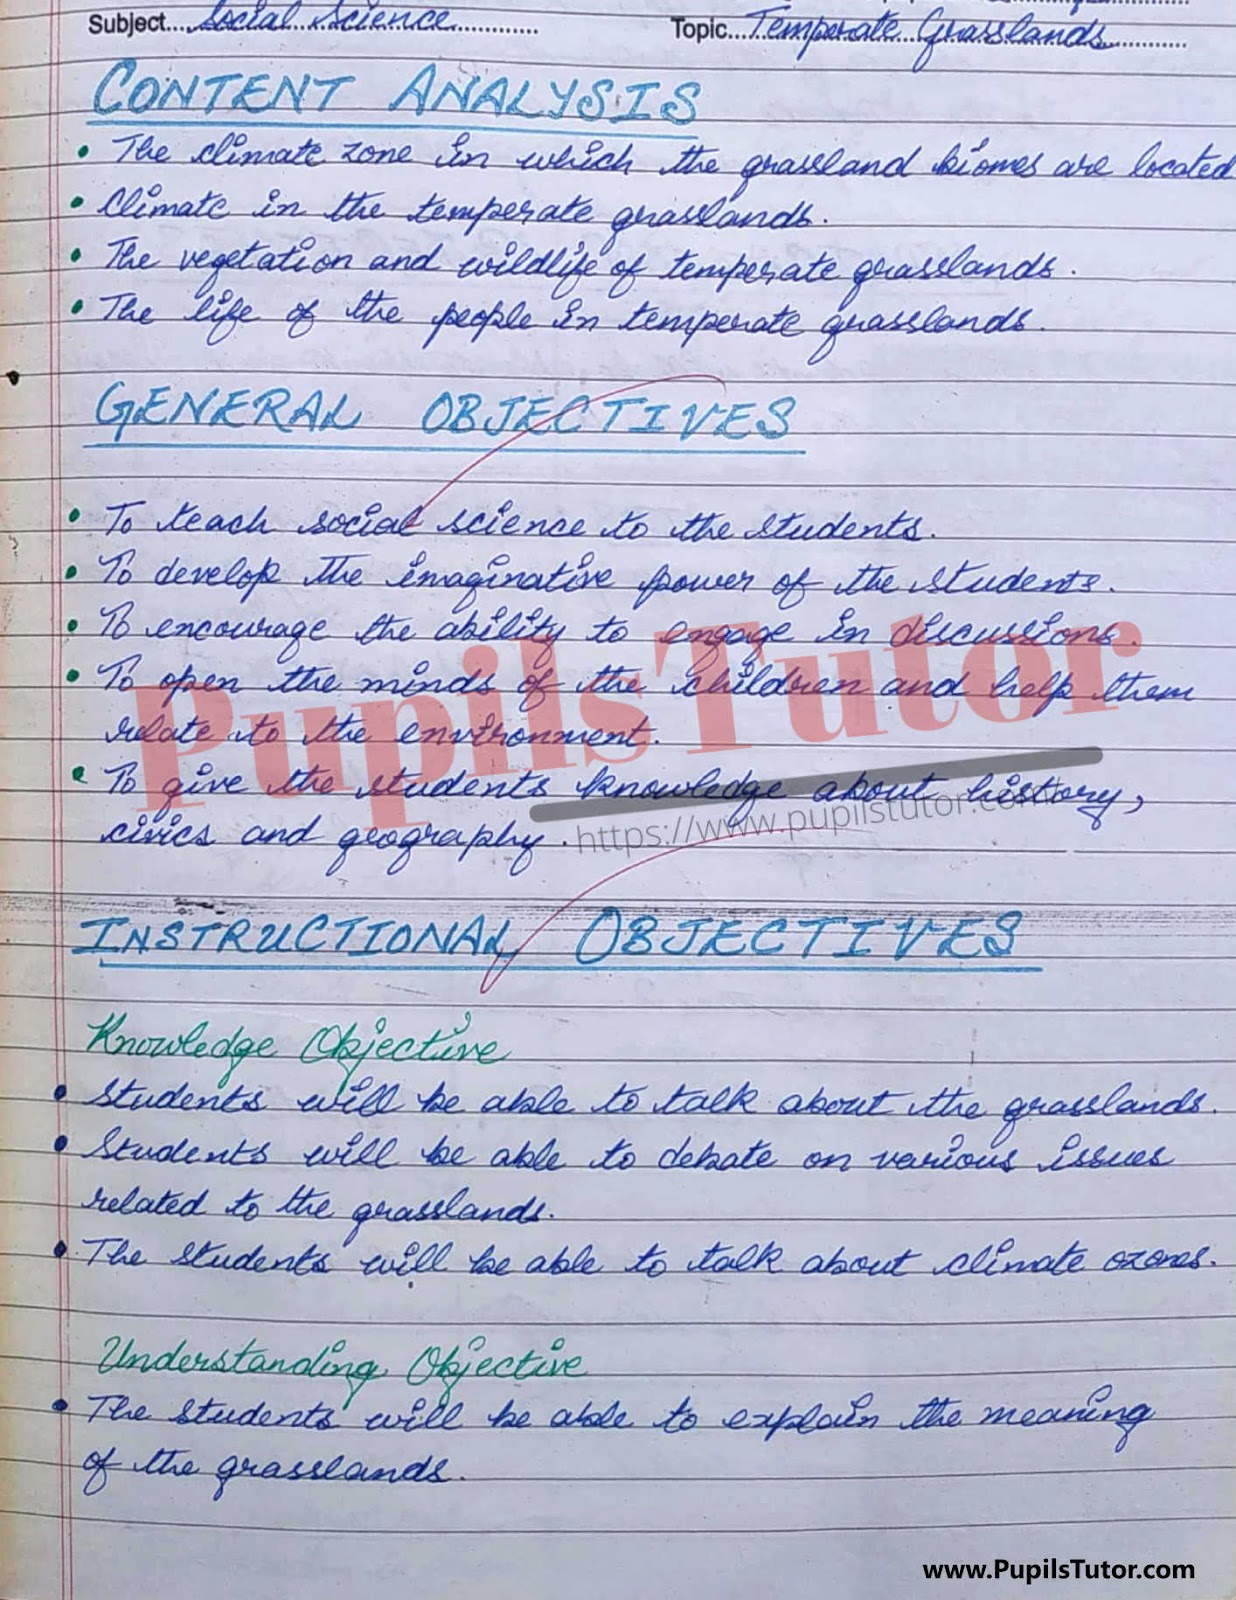 Subject....Social Science..............
Topic...Temperate Grasslands............
CONTENT ANALYSIS
• The climate zone in which the grassland biomes are located
• Climate in the temperate grasslands.
• The vegetation and wildlife of temperate grasslands.
• The life of the people in temperate grasslands.
GENERAL OBJECTIVES
• To teach social science to the students.
• To develop the imaginative power of the students.
• To encourage the ability to engage in discussions.
• To open the minds of the children and help them
relate to the environment.
• To give the students knowledge about history,
civics and geography.
PupilsTutor
https://www.pupilstutor.com/
INSTRUCTIONAL OBJECTIVES
Knowledge Objective
• Students will be able to talk about the grasslands.
• Students will be able to debate on various issues
related to the grasslands.
• The students will be able to talk about climate ozones.
Understanding Objective
• The students will be able to explain the meaning
of the grasslands.
www.PupilsTutor.com